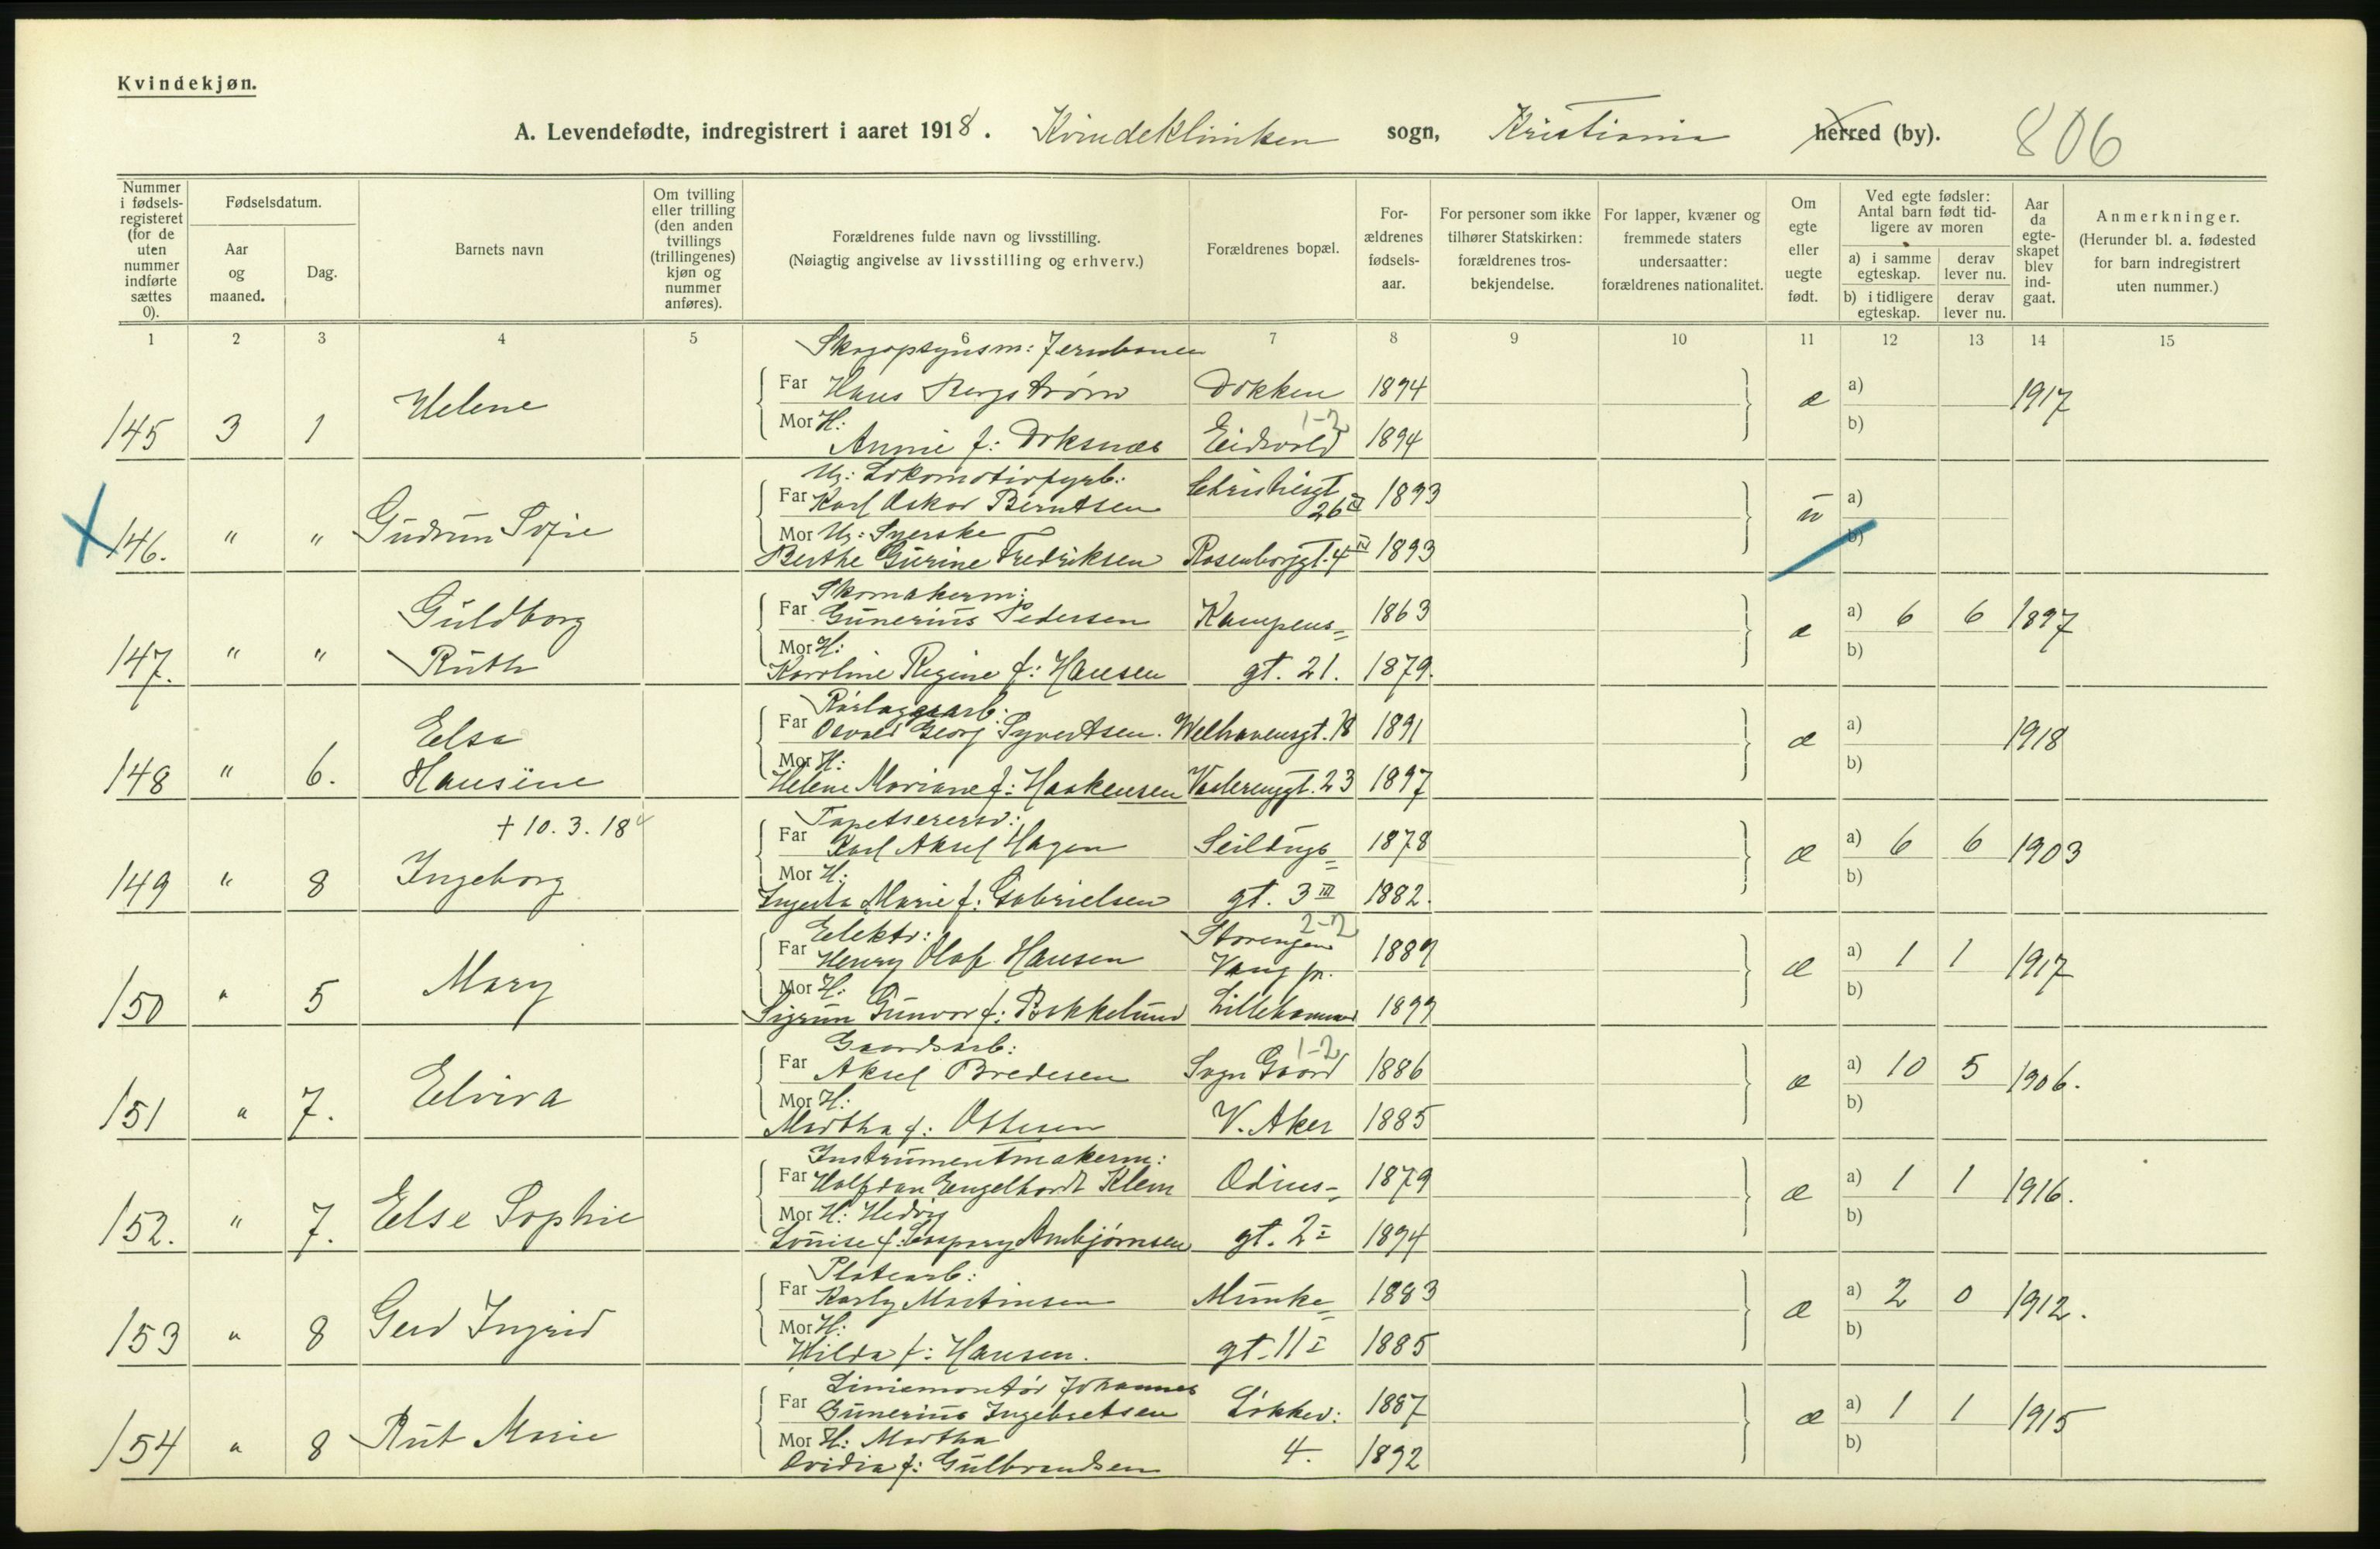 Kvindekjøn.
A. Levendefødte, indregistrert i aaret 1918. Kvindeklinikken sogn, Kristiania herred (by). 806
Nummer i fødsels-registeret (for de uten nummer indførte sættes 0).
Fødselsdatum.
Aar og maaned.
Dag.
Barnets navn
Om tvilling eller trilling (den anden tvillings (trillingenes) kjøn og nummer anføres).
Forældrenes fulde navn og livsstilling.
(Nøiagtig angivelse av livsstilling og erhverv.)
Forældrenes bopæl.
For-ældrenes fødsels-aar.
For personer som ikke tilhører Statskirken: forældrenes tros-bekjendelse.
For lapper, kvæner og fremmede staters undersaatter: forældrenes nationalitet.
Om egte eller uegte født.
Ved egte fødsler: Antal barn født tid-ligere av moren
a) i samme egteskap.
derav lever nu.
b) i tidligere egteskap.
derav lever nu.
Aar da egte-skapet blev ind-gaat.
Anmerkninger.
(Herunder bl. a. fødested for barn indregistrert uten nummer.)
1 2 3 4 5 6 7 8 9 10 11 12 13 14 15
Skogopsynsm: Jernbanen
Far Hans Bergstrøm Dokken 1894
145 3 1 Helene æ a) 1917
Mor H: 1-2 b)
Annie f: Doksnæs Eidsvold 1894
Ug: Lokomotivfyrb: Christiesgt
Far Karl Oskar Berntsen 26 II 1893
146. " " Gudrun Sofie u a)
Mor Ug: Syerske b)
Berthe Gurine Fredriksen Rosenborggt. 4 IV 1893
Skomakerm:
Far Gunerius Pedersen Kampens= 1863
147. " " Guldborg Ruth æ a) 6 6 1897
Mor H: b)
Karoline Regine f: Hansen gt. 21. 1879.
Rørlæggerarb:
Far Osvald Georg Syvertsen. Welhavensgt. 18 1891
148 " 6. Elsa Hansine æ a) 1918
Mor H: b)
Helene Mariane f: Haakensen Vaalerenggt. 23 1897
† 10. 3. 18
Tapetserersv:
Far Karl Aksel Hagen Seildugs= 1878
149 " 8 Ingeborg æ a) 6 6 1903
Mor H: b)
Marie f: Gabrielsen gt. 3 III 1882.
Elektr: 2-2
Far Henry Olaf Hansen Storengen Vang pr. 1889
150 " 5 Mary æ a) 1 1 1917
Mor H: b)
Sigrun Gunvor f: Bakkelund Lillehammer 1899
Gaardsarb: 1-2
Far Aksel Bredesen Sogn Gaard 1886
151 " 7. Elvira æ a) 10 5 1906.
Mor H: b)
Martha f: Ottesen V. Aker 1885
Instrumentmakerm:
Far Halfdan Engelhardt Klem Odins= 1879
152. " 7. Else Sophie æ a) 1 1 1916.
Mor H: Hedvig b)
Louise f: Caspary Ambjørnsen gt. 2 I 1894
Platearb:
Far Karly Martinsen Munke= 1883
153 " 8 Gerd Ingrid æ a) 2 0 1912.
Mor H: b)
Hilda f: Hansen. gt. 11 I 1885
Liniemontør Johannes
Far Gunerius Ingebretsen Løkkev: 1887
154 " 8 Rut Marie æ a) 1 1 1915
Mor H: Martha 4. 1892 b)
Ovidia f: Gulbrandsen